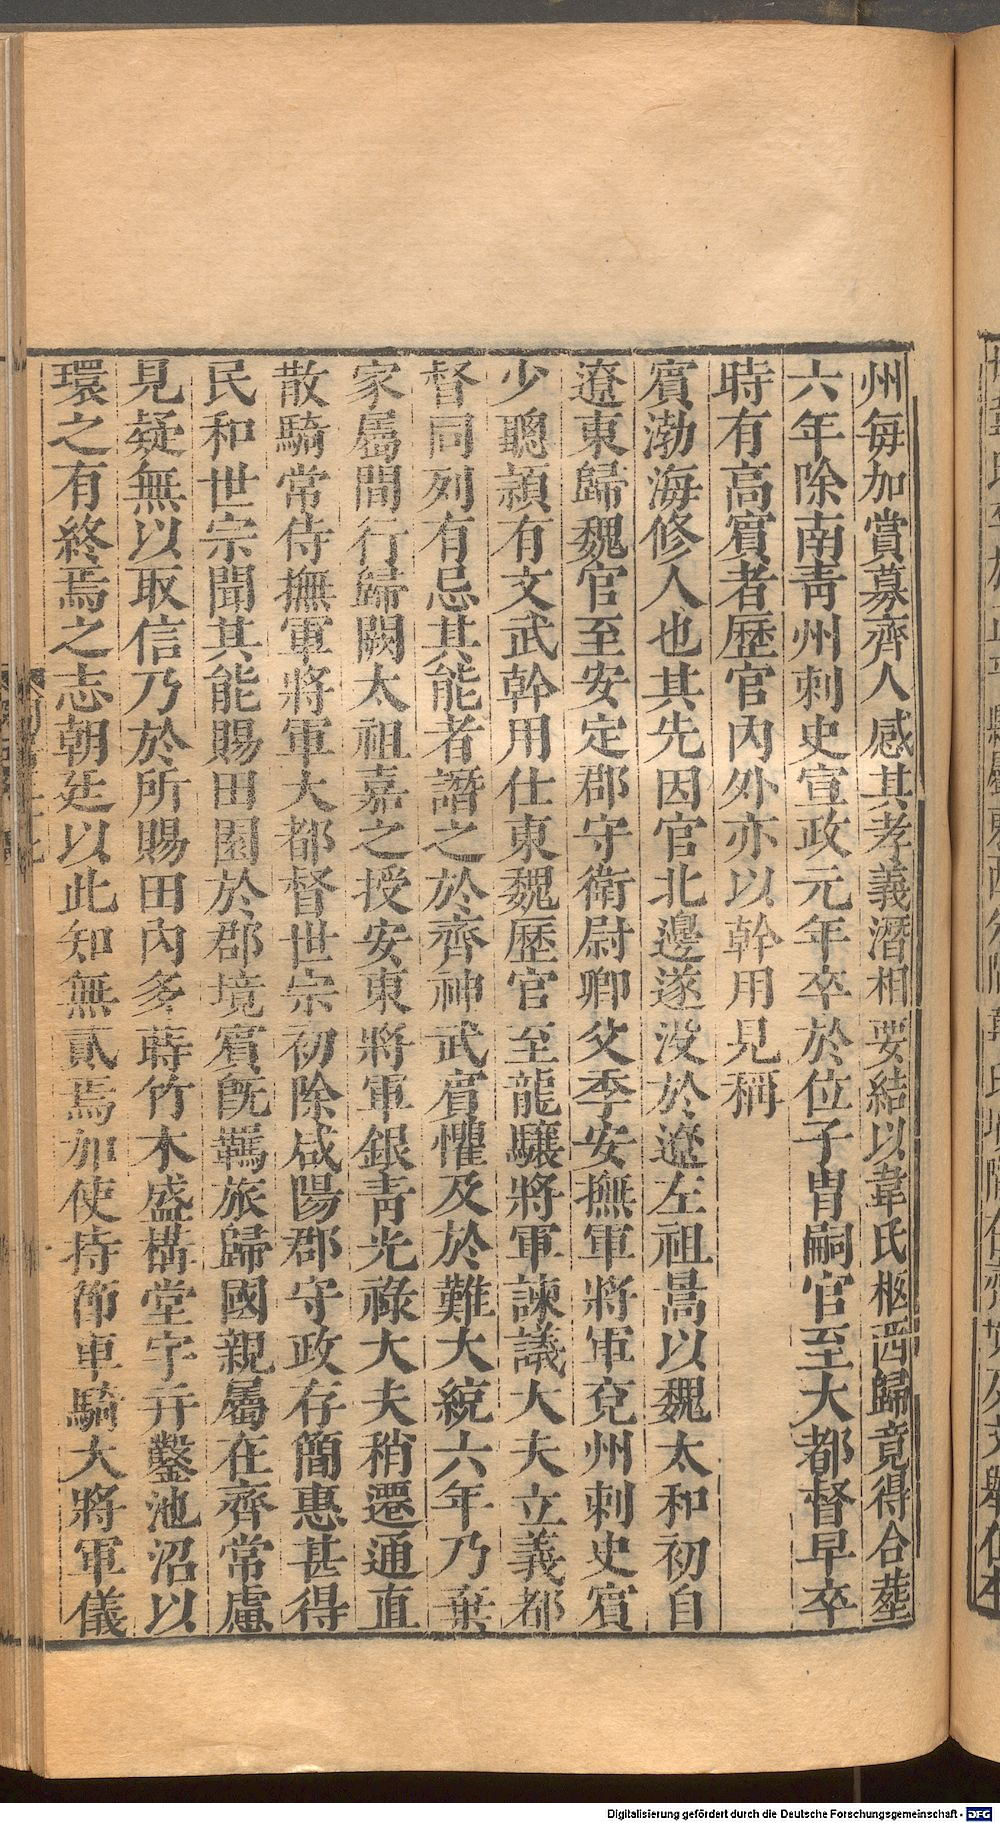 州每加賞募齊人感其孝義潛相要結以韋氏柩西歸竟得合葬
六年除南青州刺史宣政元年卒於位子胄嗣官至大都督早卒
時有高賓者歷官內外亦以幹用見稱
賓渤海修人也其先因官北邊遂没於遼左祖暠以魏太和初自
遼東歸魏官至安定郡守衛尉卿父季安撫軍將軍兗州刺史賓
少聰頴有文武幹用仕東魏歷官至龍驤將軍諫議大夫立義都
督同列有忌其能者譖之於齊神武賓懼及於難大統六年乃棄
家屬間行歸闕太祖嘉之授安東將軍銀青光祿大夫稍遷通直
散騎常侍撫軍將軍大都督世宗初除咸陽郡守政存簡惠甚得
民和世宗聞其能賜田園於郡境賓旣羈旅歸國親屬在齊常慮
見疑無以取信乃於所賜田內多蒔竹木盛構堂宇幷鑿池沼以
環之有終焉之志朝廷以此知無貳焉加使持節車騎大將軍儀
Digitalisierung gefördert durch die Deutsche Forschungsgemeinschaft - DFG